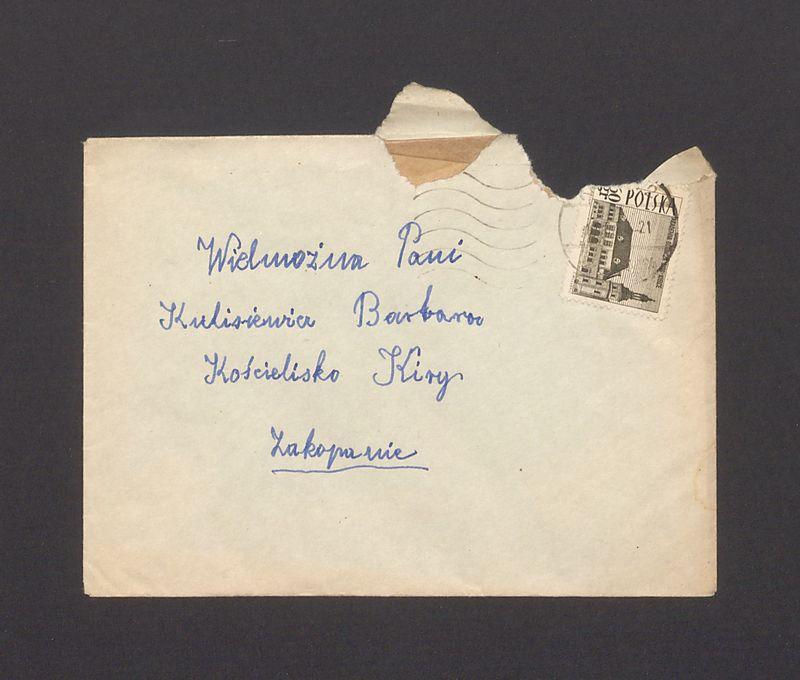 Wielmożna Pani
Kulisiewicz Barbara
Kościelisko Kiry
Zakopanie
POLSKA
21